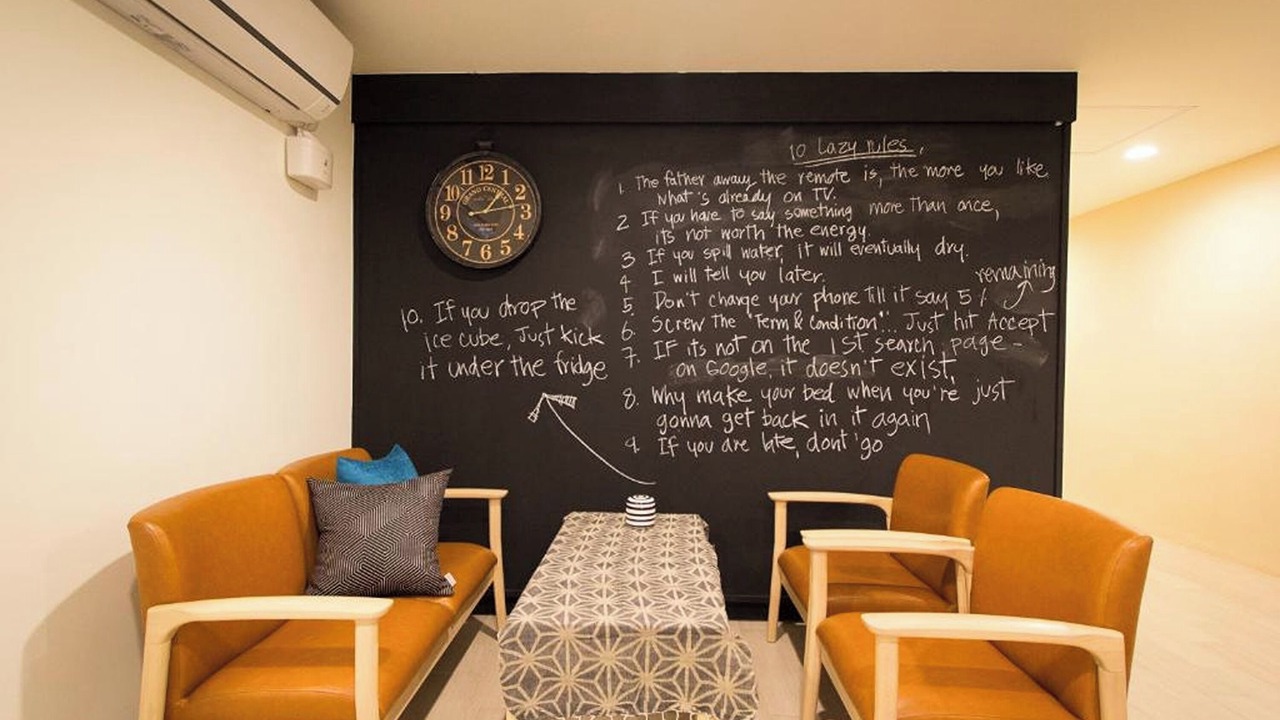 10 Lazy rules.
1. The father away the remote is, the more you like
what's already on TV.
2 If you have to say something more than once,
its not worth the energy.
3 If you spill water, it will eventually dry.
4 I will tell you later.
remaining
5. Don't charge your phone till it say 5%
6. Screw the "Term & Condition"... Just hit Accept
7. IF its not on the 1ST search page -
on Google, it doesn't exist.
8. Why make your bed when you're just
gonna get back in it again
9. If you are late, dont go
10. If you drop the
ice cube, Just kick
it under the fridge
12
1
2
3
4
5
6
7
8
9
10
11
GRAND CENTRAL